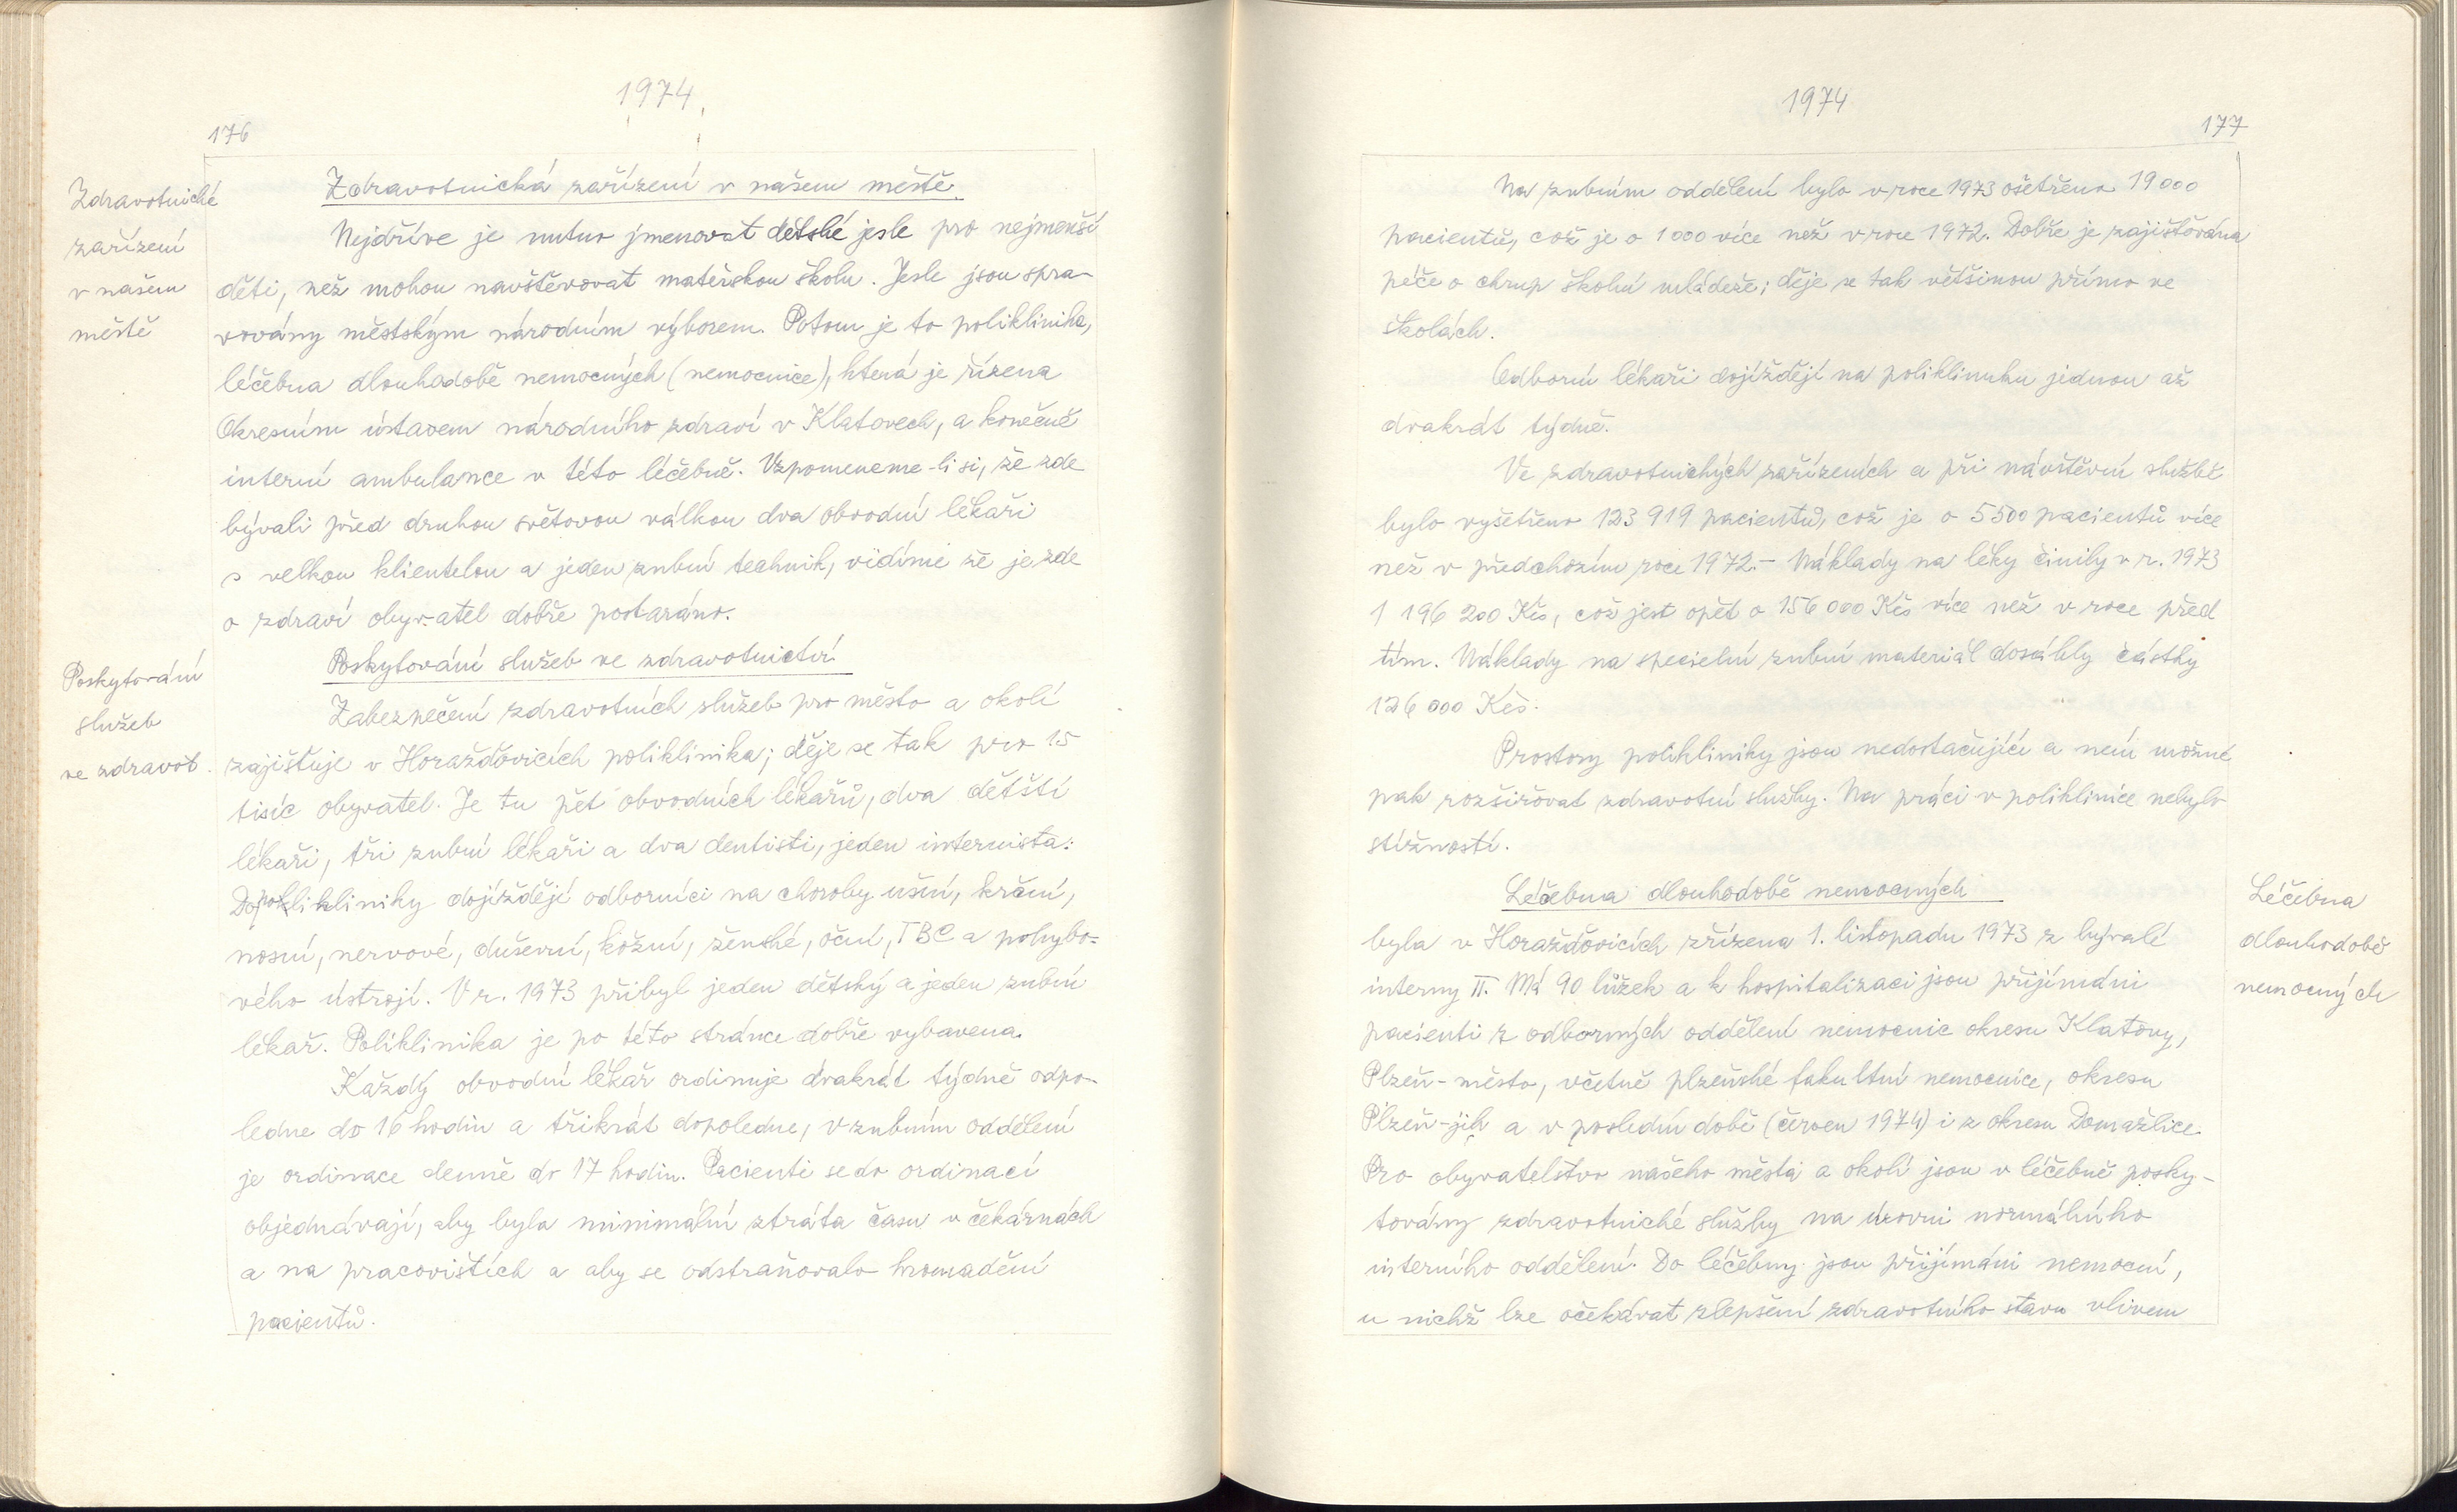 1974
176
Zdravotnické
zařízení
v našem
městě
Zdravotnická zařízení v našem městě.
Nejdříve je nutno jmenovat dětské jesle pro nejmenší
děti, než mohou navštěvovat mateřskou školu. Jesle jsou spra-
vovány městským národním výborem. Potom je to poliklinika,
léčebna dlouhodobě nemocných (nemocnice), která je řízena
Okresním ústavem národního zdraví v Klatovech, a konečně
interní ambulance v této léčebně. Vzpomeneme-li si, že zde
bývali před druhou světovou válkou dva obvodní lékaři
s velkou klientelou a jeden zubní technik, vidíme že je zde
o zdraví obyvatel dobře postaráno.
Poskytování
služeb
ve zdravot.
Poskytování služeb ve zdravotnictví
Zabezpečení zdravotních služeb pro město a okolí
zajišťuje v Horažďovicích poliklinika; děje se tak pro 15
tisíc obyvatel. Je tu pět obvodních lékařů, dva dětští
lékaři, tři zubní lékaři a dva dentisti, jeden internista.
Do polikliniky dojíždějí odborníci na choroby ušní, krční,
nosní, nervové, duševní, kožní, ženské, oční, TBC a pohybo-
vého ústrojí. V r. 1973 přibyl jeden dětský a jeden zubní
lékař. Poliklinika je po této stránce dobře vybavena.
Každý obvodní lékař ordinuje dvakrát týdně odpo-
ledne do 16 hodin a třikrát dopoledne, v zubním oddělení
je ordinace denně do 17 hodin. Pacienti se do ordinací
objednávají, aby byla minimální ztráta času v čekárnách
a na pracovištích a aby se odstraňovalo hromadění
pacientů.
1974
177
Na zubním oddělení bylo v roce 1973 ošetřeno 19 000
pacientů, což je o 1 000 více než v roce 1972. Dobře je zajišťována
péče o chrup školní mládeže; děje se tak většinou přímo ve
školách.
Odborní lékaři dojíždějí na polikliniku jednou až
dvakrát týdně.
Ve zdravotnických zařízeních a při návštěvní službě
bylo vyšetřeno 123 919 pacientů, což je o 5500 pacientů více
než v předchozím roce 1972.- Náklady na léky činily v r. 1973
1 196 200 Kčs, což jest opět o 156 000 Kčs více než v roce před
tím. Náklady na specielní zubní materiál dosáhly částky
126 000 Kčs.
Prostory polikliniky jsou nedostačující a není možné
pak rozšiřovat zdravotní služby. Na práci v poliklinice nebylo
stížností.
Léčebna dlouhodobě nemocných
byla v Horažďovicích zřízena 1. listopadu 1973 z bývalé
interny II. Má 90 lůžek a k hospitalizaci jsou přijímáni
pacienti z odborných oddělení nemocnic okresu Klatovy,
Plzeň-město, včetně plzeňské fakultní nemocnice, okresu
Plzeň-jih a v poslední době (červen 1974) i z okresu Domažlice.
Pro obyvatelstvo našeho města a okolí jsou v léčebně posky-
továny zdravotnické služby na úrovni normálního
interního oddělení. Do léčebny jsou přijímáni nemocní,
u nichž lze očekávat zlepšení zdravotního stavu vlivem
Léčebna
dlouhodobě
nemocných